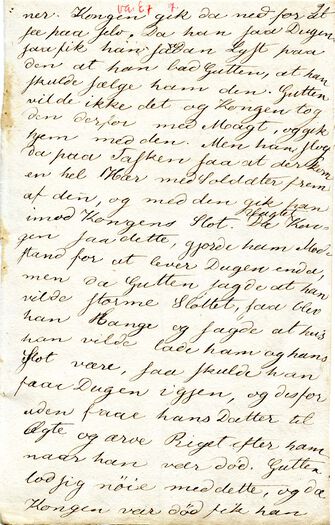 ner. Kongen gik da ned for at
see paa selv. Da han saa Dugen,
saa fik han sådan Lyst paa
den at han bad Gutten, at han
skulde sælge ham den. Gutten
vilde ikke det og Kongen tog
den derfor med Magt, og gik
hjem med den. Men han slog
da paa Tasken saa at der kom
en hel Hær med Soldater frem
af den, og med den gik han
imod Kongens Slot. Da Kon-
gen saa dette, gjorde ham Mod-
stand for at lever Dugen enda,
men da Gutten sagde at han
vilde storme Slottet, saa blev
han Bange og sagde at hvis
han vilde lade ham og hans
Slot være, saa skulde han
faae Dugen igjen, og desfor
uden faae hans Datter til
Ægte og arve Riget efter ham
naar han var død. Gutten
lod sig nöie med dette, og da
Kongen var død fik han